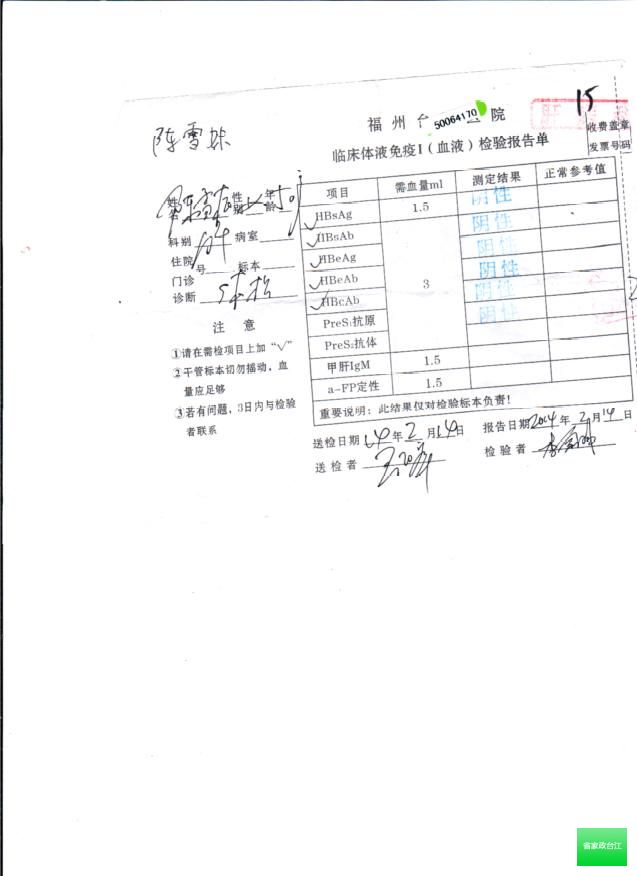 15
陈雪妹
福州台 医院
50064170
收费盖章
发票号码
临床体液免疫I(血液)检验报告单
姓名 性别 女 年龄
科别 病室
住院号 标本
门诊
诊断
注 意
①请在需检项目上加“√”
②干管标本切勿摇动,血
量应足够
③若有问题,3日内与检验
者联系
项目 需血量ml 测定结果 正常参考值
HBsAg 1.5 阴性
√HBsAb 阴性
√HBeAg 3 阴性
√HBeAb 阴性
√HBcAb 阴性
PreS₁抗原 阴性
PreS₂抗体
甲肝IgM 1.5
a-FP定性 1.5
重要说明:此结果仅对检验标本负责!
送检日期 14年2月14日 报告日期2014年2月14日
送检者 检验者
省家政台江